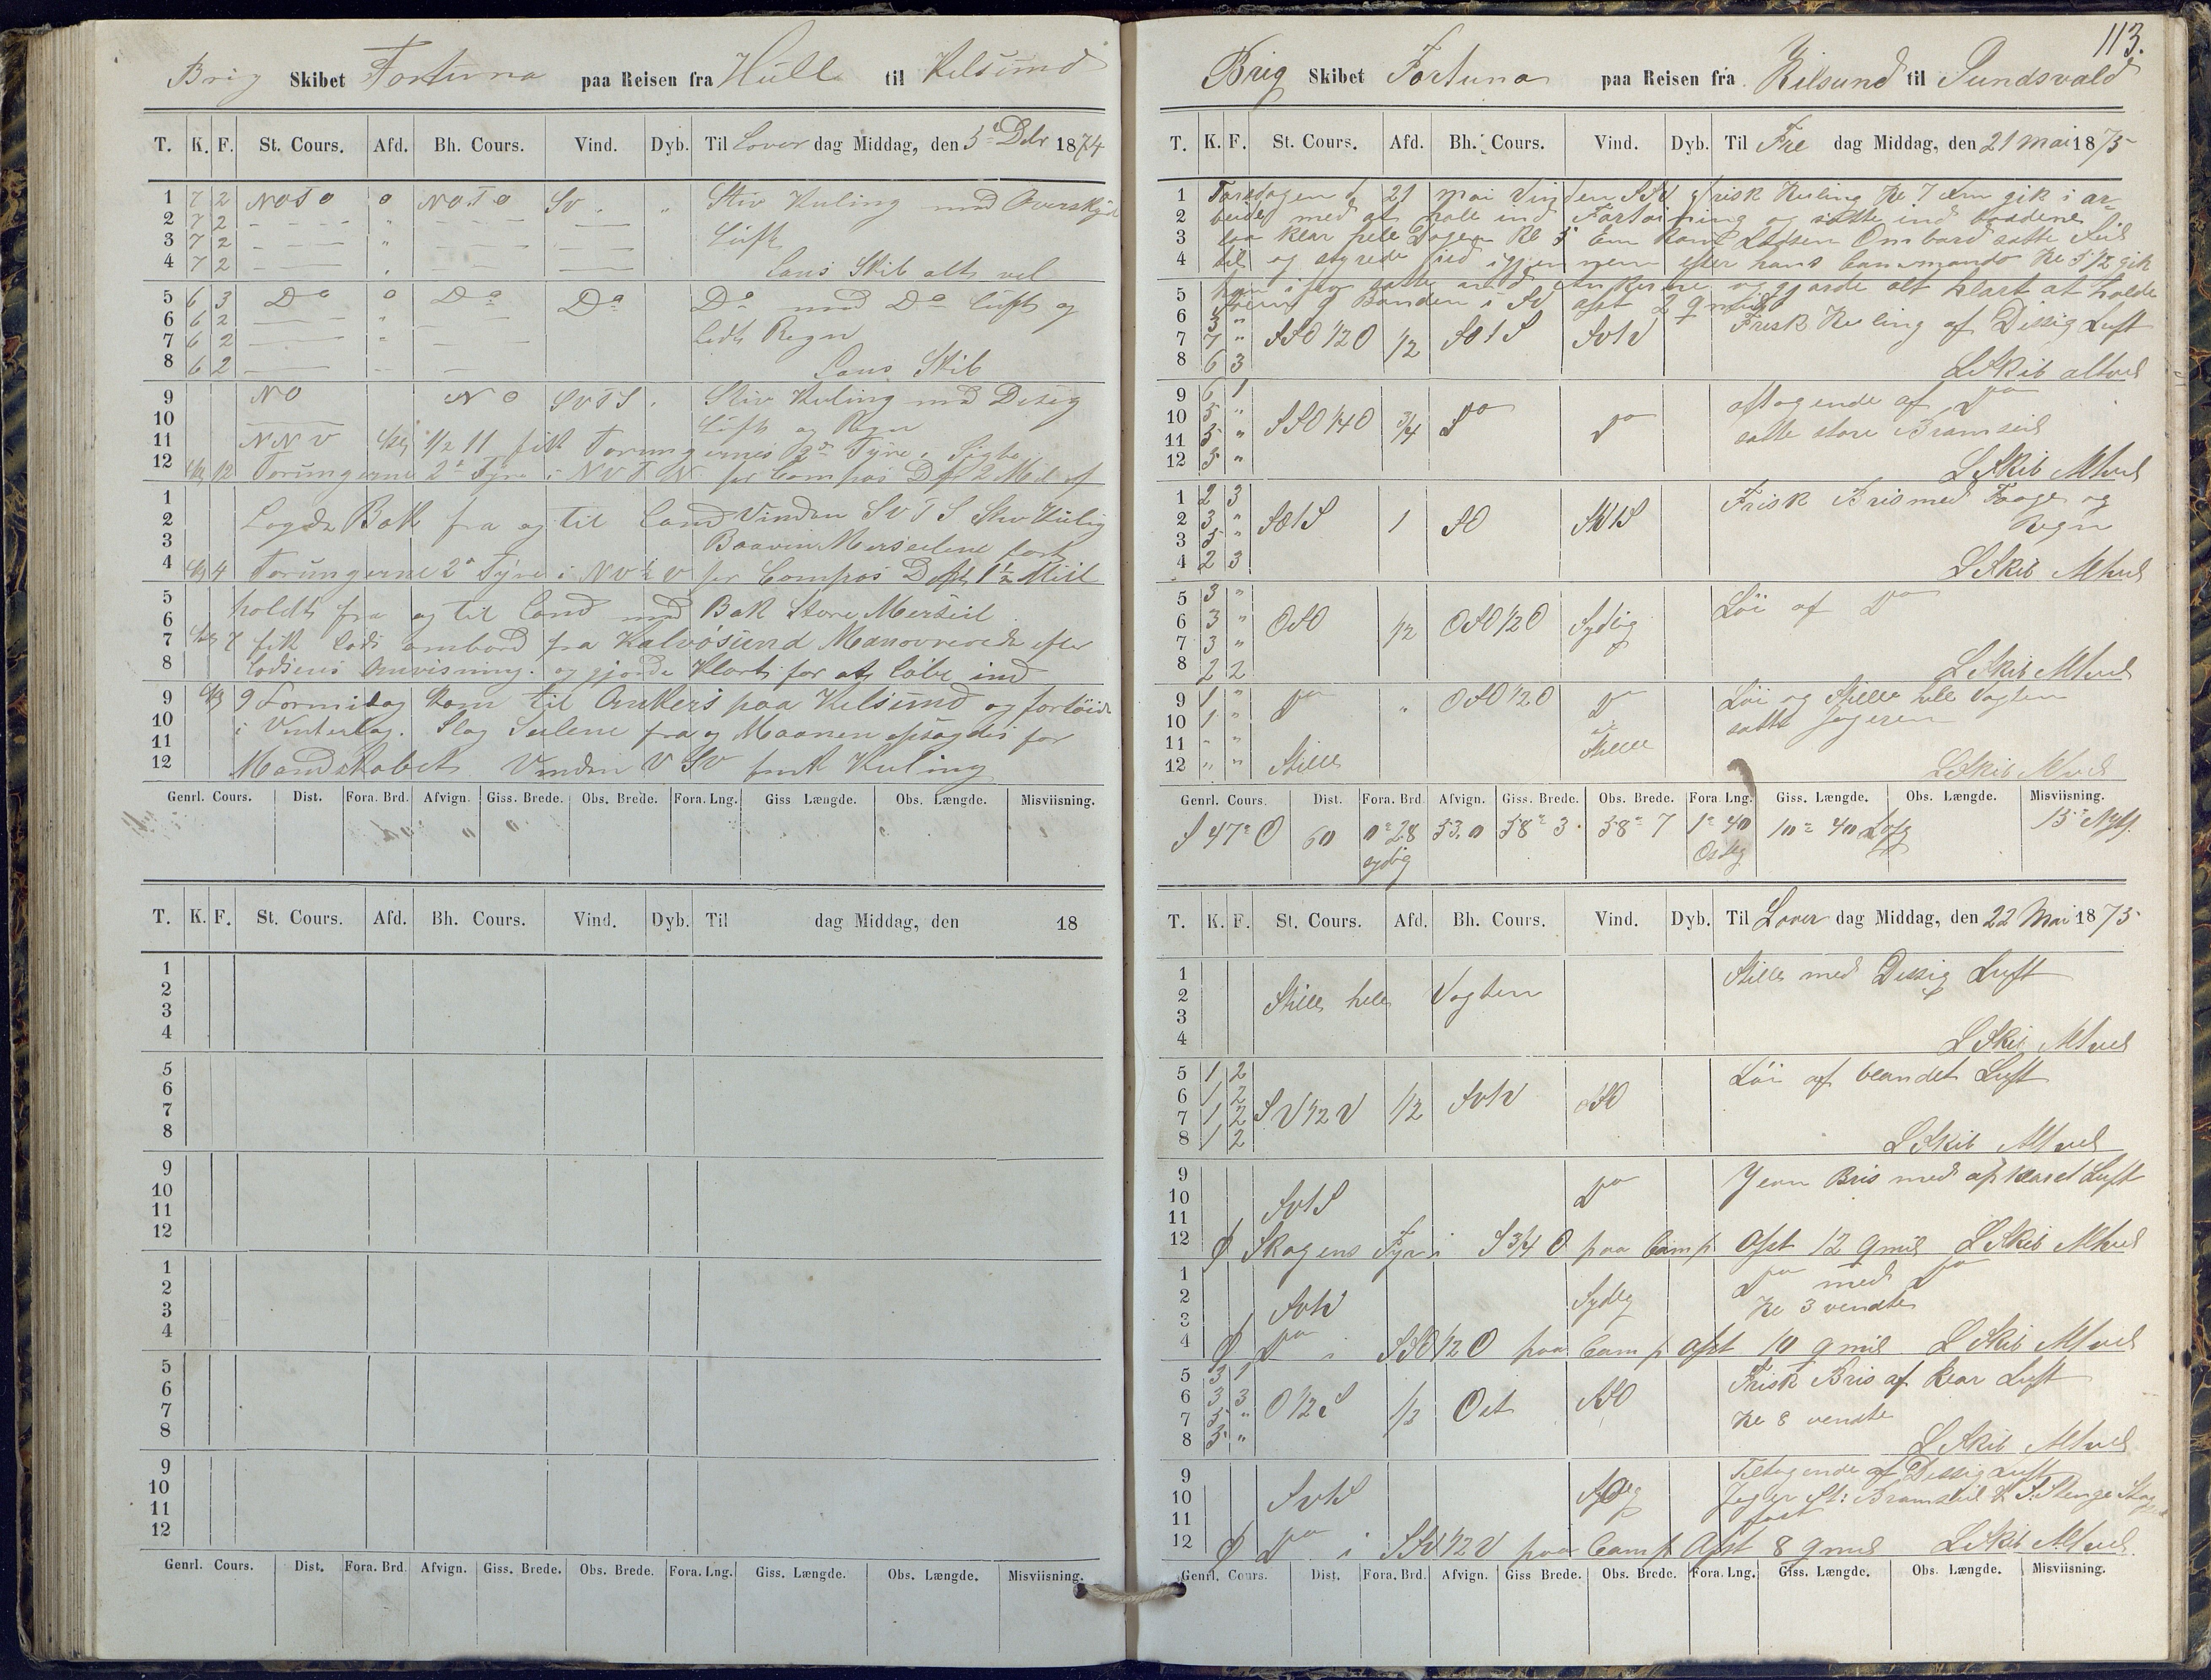 Brig Skibet Fortuna paa Reisen fra Hull til Kilsund
T. K. F. St. Cours. Afd. Bh. Cours. Vind. Dyb. Til Lover dag Middag, den 5te Debr 1874
1 7 2 NOTO 0 NOTO SV " Stiv Kuling med Overskyet
2 7 2 " Luft
3 7 2 "
4 7 2 " Lens Skib alt vel
5 6 3 Do 0 Do Do Do med Do Luft og
6 6 2 " lidt Regn
7 6 2 "
8 6 2 Lens Skib
9 NO NO SVTS Stiv Kuling med Disig
10 Luft og Regn
11 NNV Kl 1/2 11 fik Torungernes 2de Fyre i Sigte
12 Kl 12 Torungerne 2de Fyre i NVTN per Compas Dist 2 Mil af
1
2 Lagde Bak fra og til Land Vinden SVTS Stiv Kulig
3 Baaven Merseilene fast
4 Kl 4 Torungerne 2de Fyre i NV 1/2 V per Compas D aft 1 1/2 Mil
5 holdt fra og til Land med Bak Store Merseil
6
7 Kl 7 fik Lods ombord fra Kalvøsund Manovrerede efter
8 Lodsens Anvisning. og gjorde Klart for at løbe ind
9 Kl 9 Formidag kom til Ankers paa Kilsund og fortøide
10 i Vinterlag. Slog Seilene fra og
11
12 Mandskabet Vinden VSV frisk Kuling
Genrl. Cours. Dist. Fora. Brd. Afvign. Giss. Brede. Obs. Brede. Fora. Lng. Giss Længde. Obs. Længde. Misviisning.
T. K. F. St. Cours. Afd. Bh. Cours. Vind. Dyb. Til dag Middag, den 18
1
2
3
4
5
6
7
8
9
10
11
12
1
2
3
4
5
6
7
8
9
10
11
12
Genrl. Cours. Dist. Fora. Brd. Afvign. Giss. Brede. Obs. Brede. Fora. Lng. Giss. Længde. Obs. Længde. Misviisning.
113.
Brig Skibet Fortuna paa Reisen fra Kilsund til Sundsvald
T. K. F. St. Cours. Afd. Bh. Cours. Vind. Dyb. Til Fre dag Middag, den 21 Mai 1875
1 Torsdagen d 21 mai Vinden SSV frisk Kuling Kl 7 Em gik i ar-
2 beide med at hale ind Fortøining og satte ind baadene
3 laa klar hele Dagen Kl 5 Em kom Lodsen Ombord satte Seil
4 til og styrede ud igjennem efter hans Commando Kl 5 1/2 gik
5 han ifra satte ind Ankerne og gjorde alt klart at holde
6 5 " i SV afst 2 qmiil Frisk Kuling af Dissig Luft
7 7 " SSO 1/2 O 1/2 SO t S SV t V
8 6 3 L Skib altvel
9 6 1 aftagende af Do
10 5 " SSO 1/4 O 3/4 Do Do satte store Bramseil
11 5 "
12 5 " L Skib Altvel
1 2 3 Frisk Bris med Taage og
2 3 " SO t S 1 SO SV t S Regn
3 5 "
4 2 3 L Skib Altvel
5 3 " Løi af Do
6 3 " OSO 1/2 OSO 1/2 O Sydlig
7 3 "
8 2 2 L Skib Altvel
9 1 " Do " OSO 1/2 O Do Løi og Stille hele Vagten
10 1 " satte Jageren
11 " " Stille
12 " " Stille L Skib Altvel
Genrl. Cours. Dist. Fora. Brd. Afvign. Giss. Brede. Obs. Brede. Fora Lng. Giss. Længde. Obs. Længde. Misviisning.
S 47° O 60 0° 28 sydlig 53.0 58° 3 58° 7 1° 40 Ostlig 10° 40 15°
T. K. F. St. Cours. Afd. Bh. Cours. Vind. Dyb. Til Lover dag Middag, den 22 Mai 1875
1 Stille med Dissig Luft
2 Stille hele Vagten
3
4 L Skib Altvel
5 1 2 Løi af blandet Luft
6 1 2
7 1 2 SV 1/2 V 1/2 SV t V SSO
8 1 2 L Skib Altvel
9 Jevn Bris med opklaret Luft
10 SV t S Do
11
12 Skagens Fyr i S 3/4 O paa Comp Afst 12 qmil L Skib Altvel
1 Do med Do
2 SV t V Sydlig Kl 3 vendte
3
4 Do i SSO 1/2 O paa Comp Afst 10 qmil L Skib Altvel
5 3 1 Frisk Bris af klar Luft
6 3 3 O 1/2 S 1/2 Ost SSO
7 5 " Kl 8 vendte
8 5 " L Skib Altvel
9 Tiltagende af Dissig Luft
10 SV t S Jager St: Bramseil & Stenge Stag
11 fast
12 Do i SSV 1/2 V paa Comp Afst 8 qmil L Skib Altvel
Genrl. Cours. Dist. Fora. Brd. Afvign. Giss Brede. Obs. Brede. Fora. Lng. Giss. Længde. Obs. Længde. Misviisning.